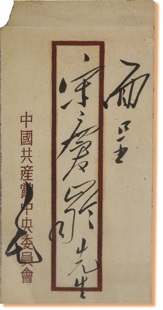 面呈
宋慶齡先生
中國共產黨中央委員會